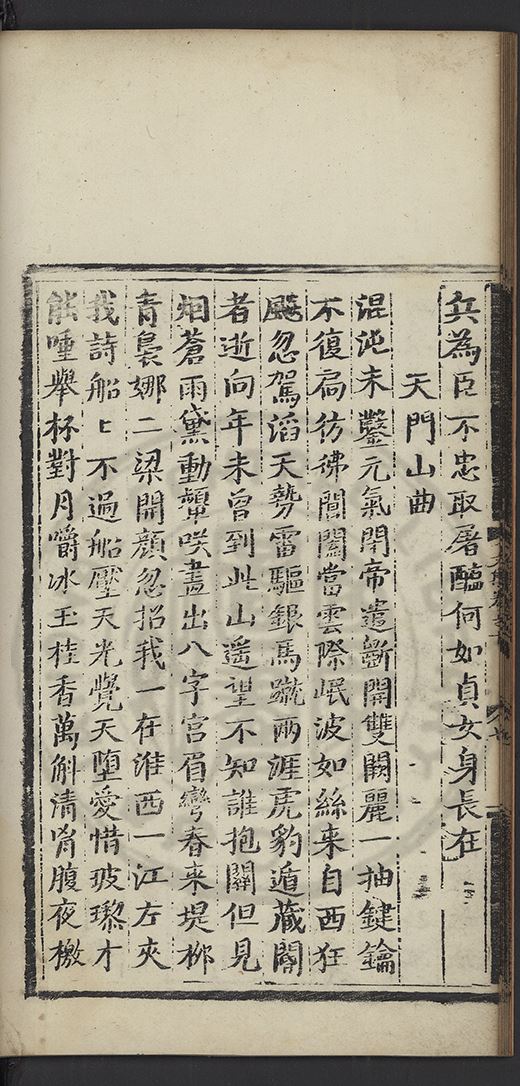 兵為臣不忠取屠醢何如貞女身長在
天門山曲
混沌未鑿元氣閉帝遣斲開雙闕麗一抽鍵鑰
不復扃彷彿閶闔當雲際岷波如絲来自西狂
飈忽駕滔天勢雷驅銀馬蹴兩涯虎豹遁藏閽
者逝向年未曾到此山遥望不知誰抱關但見
烟蒼雨黛動顰咲畫出八字宮眉彎春来堤柳
青裊娜二梁開顔忽招我一在淮西一江左夾
我詩船上不過船壓天光覺天堕愛惜玻瓈才
能唾舉杯對月嚼冰玉桂香萬斛清胷腹夜檄